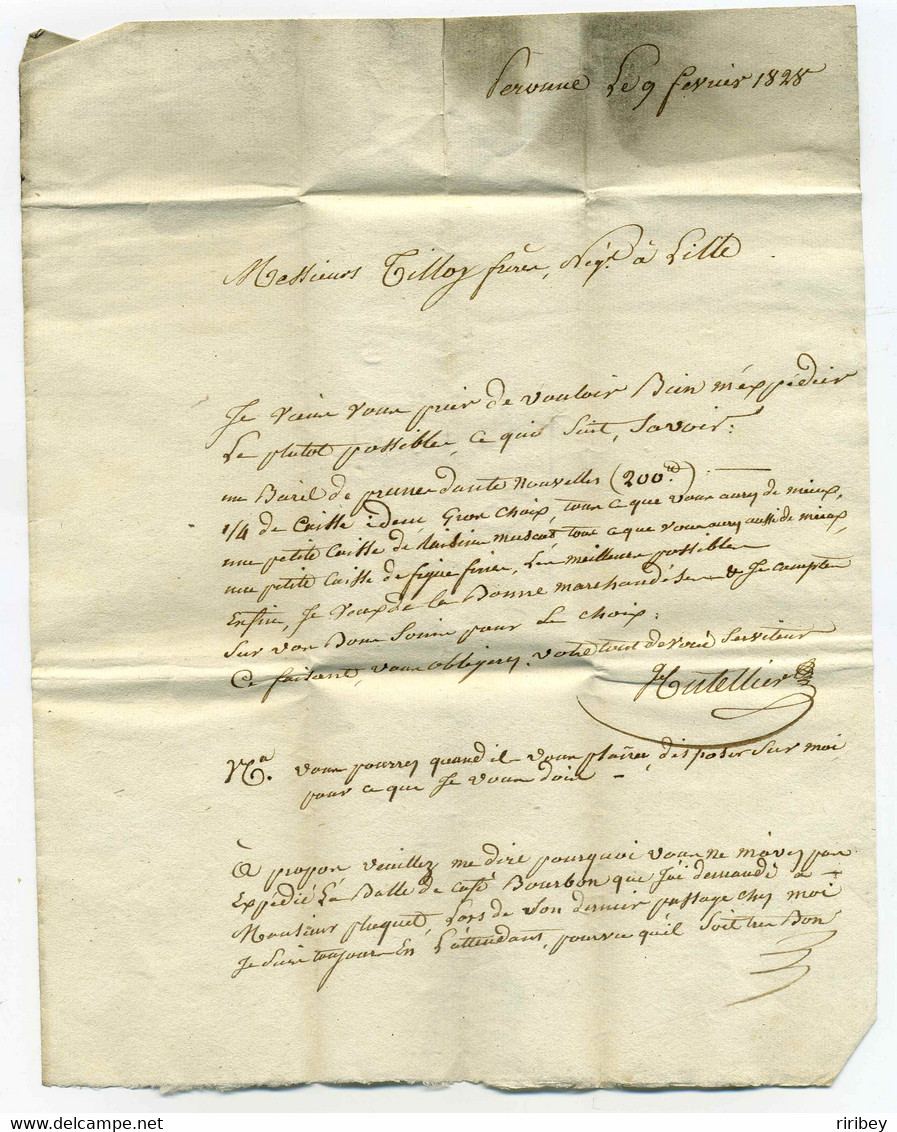 Peronne Le 9 fevrier 1828
Messieurs Tilloy frères, Nég.t à Lille
Je viens vous prier de vouloir Bien m'éxpédier
Le plutot possible, ce qui Suit, Savoir:
un Baril de prunes dante Nouvelles (200 ) —
1/4 de Caisse idem Gros choix, tous ce que vous aurez de mieux,
une petite Caisse de Raisins muscat tout ce que vous aurez aussi de mieux,
une petite Caisse de figue fines, Les meilleures possibles
Enfin, Je veux de la Bonne marchandise & Je compte
Sur vos Bons Soins pour Le choix.
Ce faisant, vous obligerez votre tout dévoué Serviteur
Hutellier
N.a vous pourrez quand il vous plaira, disposer Sur moi
pour ce que Je vous dois —
à propos veuillez me dire pourquoi vous ne m'avez pas
Expédié La Balle de café Bourbon que J'ai demandé à
Monsieur pluquet, Lors de Son dernier passage chez moi
Je Suis toujours En L'attendant, pourvu qu'il Soit très Bon
riribey